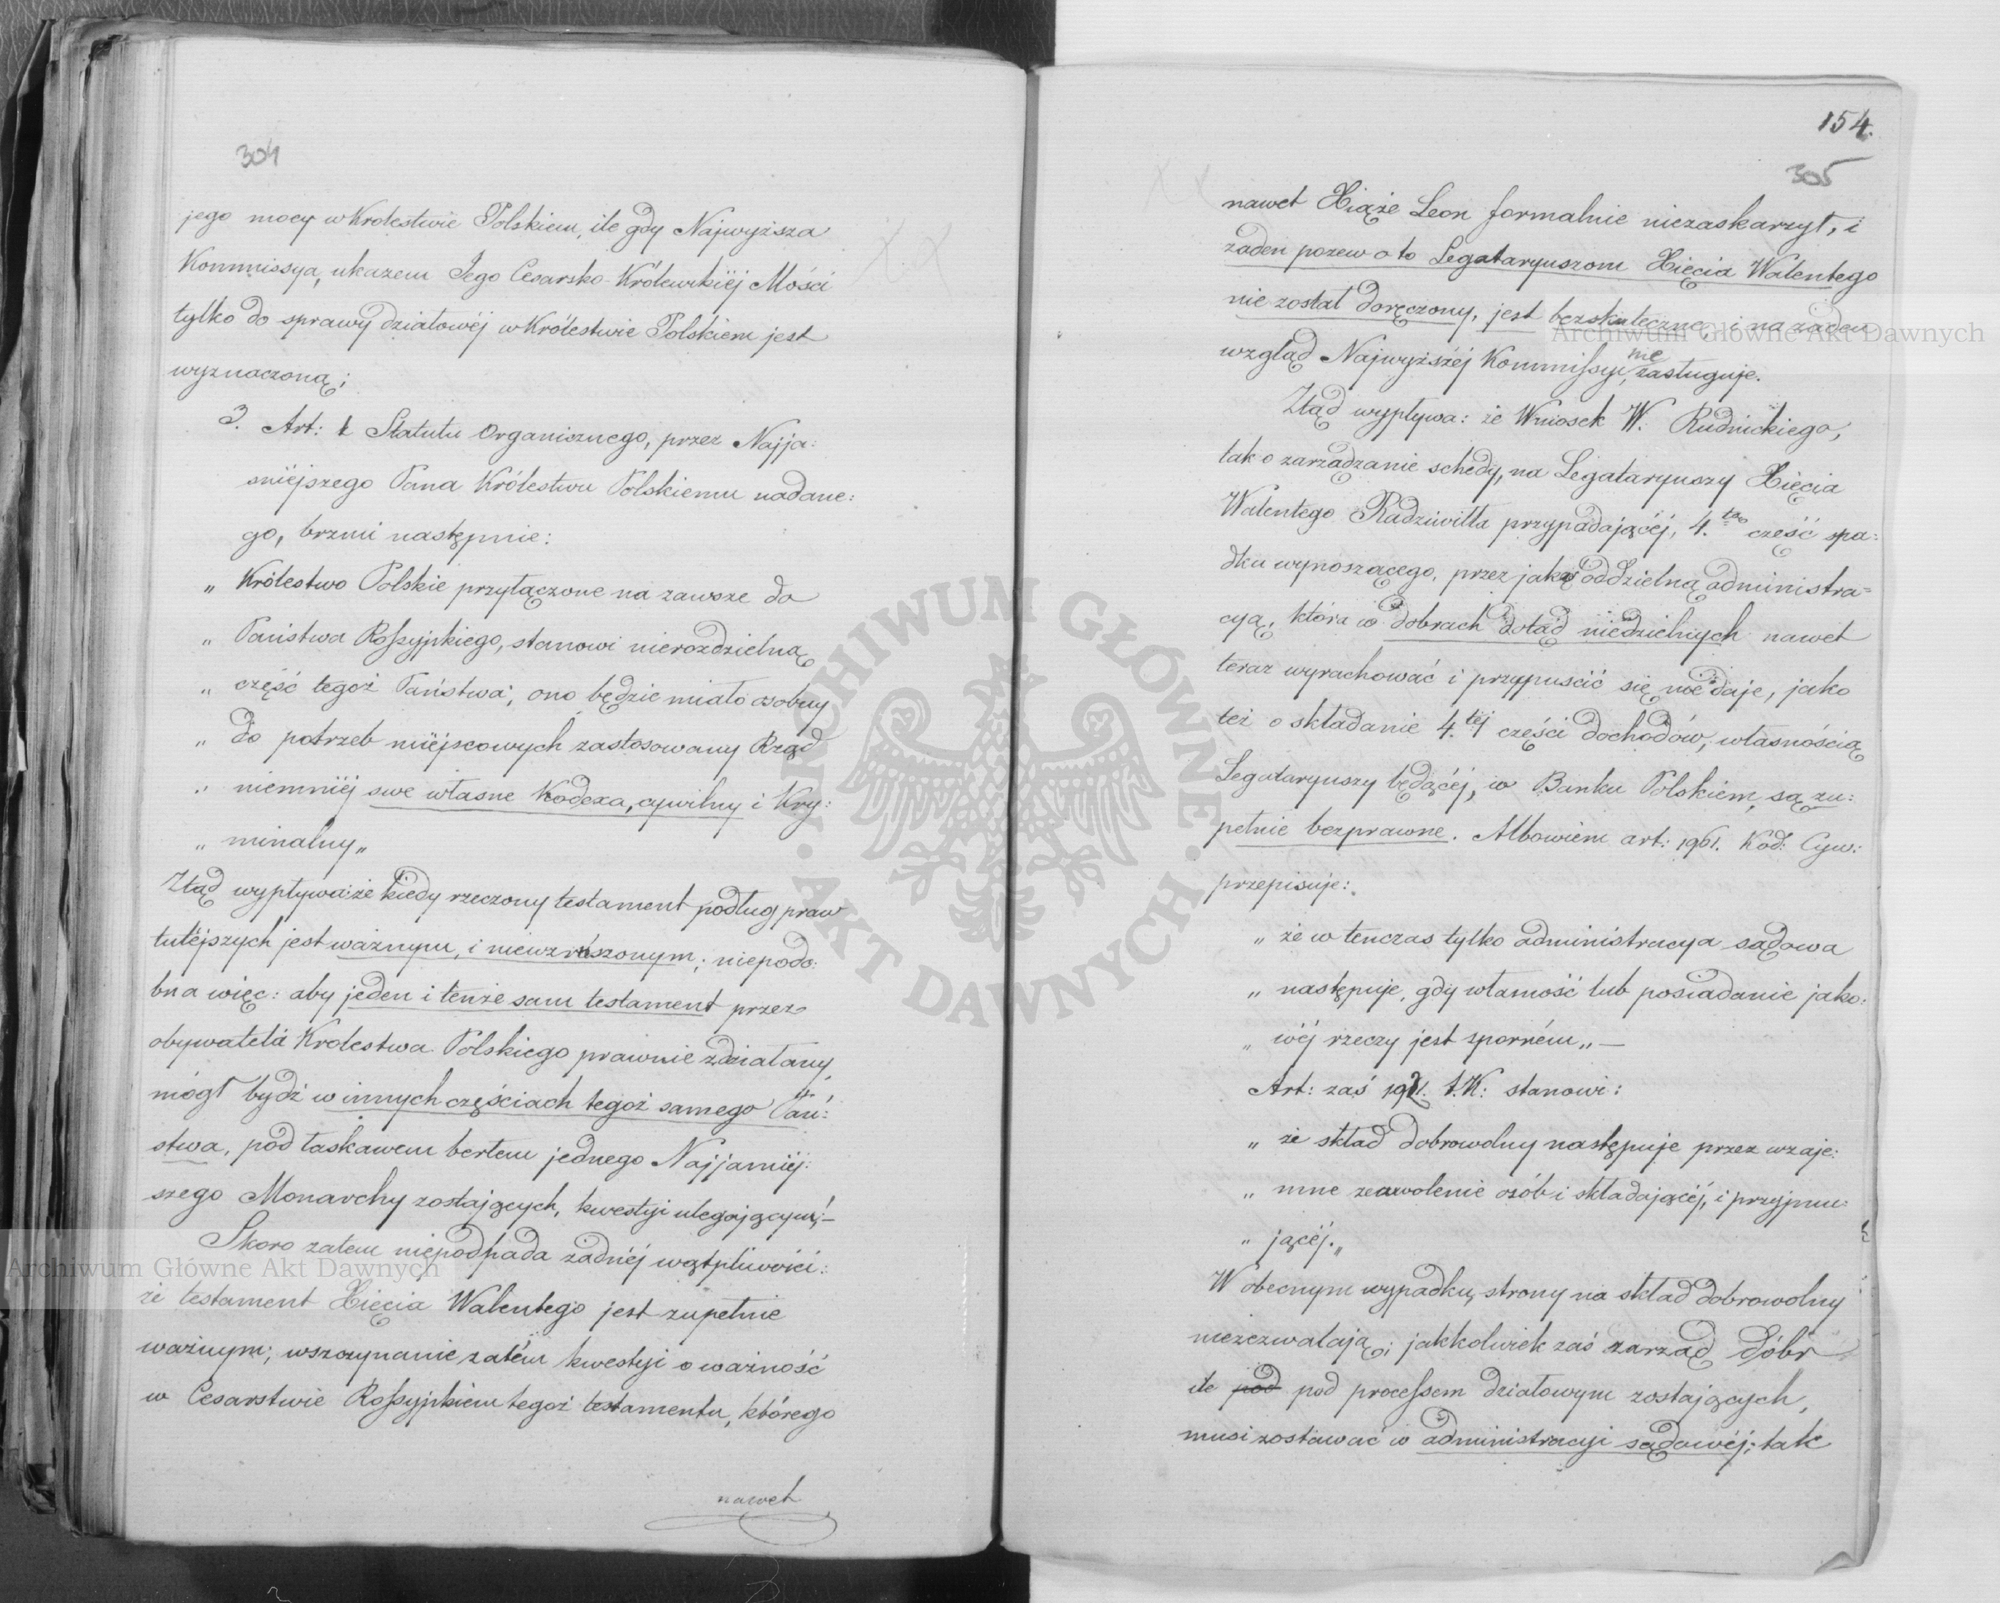 304
jego mocy w Krolestwie Polskiem, ile gdy Najwyższa
Kommissya, ukazem Jego Cesarsko-Królewskiéj Mości
tylko do sprawy działowéj w Królestwie Polskiem jest
wyznaczoną;
3. Art: 1 Statutu Organicznego, przez Najja:
śniéjszego Pana Królestwu Polskiemu nadane:
go, brzmi następnie:
„ Królestwo Polskie przyłączone na zawsze do
„ Państwa Rossyjskiego, stanowi nierozdzielną
„ część tegoż Państwa; ono będzie miało osobny
„ do potrzeb miéjscowych zastosowany Rząd
„ niemniéj swe własne Kodexa, cywilny i Kry:
„ minalny„
Ztąd wypływa: że kiedy rzeczony testament podług praw
tutéjszych jest ważnym, i niewzruszonym; niepodo:
bna więc: aby jeden i tenże sam testament przez
obywatela Krolestwa Polskiego prawnie zdziałany,
mógł bydź w innych częściach tegoż samego Pań:
stwa, pod łaskawem berłem jednego Najjaśniéj:
szego Monarchy zostających, kwestyi ulegającym;–
Skoro zatem niepodpada żadnéj wątpliwości:
że testament Xięcia Walentego jest zupełnie
ważnym; wszczynanie zatém kwestyi o ważność
w Cesarstwie Rossyjskiem tegoż testamentu, którego
nawet
154.
305
nawet Xiąże Leon formalnie niezaskarzył, i
żaden pozew o to Legataryuszom Xięcia Walentego
nie został doręczony, jest bezskuteczne, i na żaden
wzgląd Najwyższéj Kommissyi nie zasługuje.
Ztąd wypływa: że Wniosek W. Rudnickiego,
tak o zarządzanie schedy, na Legataryuszy Xięcia
Walentego Radziwiłła przypadającéj, 4.tą część spa:
dku wynoszącego, przez jakąś oddzielną administra=
cyą, która w dobrach dotąd niedzielnych nawet
teraz wyrachować i przypuścić się nie daje, jako
też o składanie 4.téj części dochodów, własnością
Legataryuszy będącéj, w Banku Polskiem, są zu:
pełnie bezprawne. Albowiem art: 1961. Kod: Cyw:
przepisuje:
„ że w tenczas tylko administracya sądowa
„ następuje, gdy własność lub posiadanie jako:
„ wéj rzeczy jest sporném„ –
Art: zaś 1921. t.K: stanowi:
„ że skład dobrowolny następuje przez wzaje:
„ mne zezwolenie osób i składającéj, i przyjmu:
„ jącéj.„
W obecnym wypadku, strony na skład dobrowolny
niezezwalają; jakkolwiek zaś zarząd dóbr
ile pod pod processem działowym zostających,
musi zostawać w administracyi sądowéj; tak
Archiwum Główne Akt Dawnych
Archiwum Główne Akt Dawnych
ARCHIWUM GŁÓWNE · AKT DAWNYCH ·